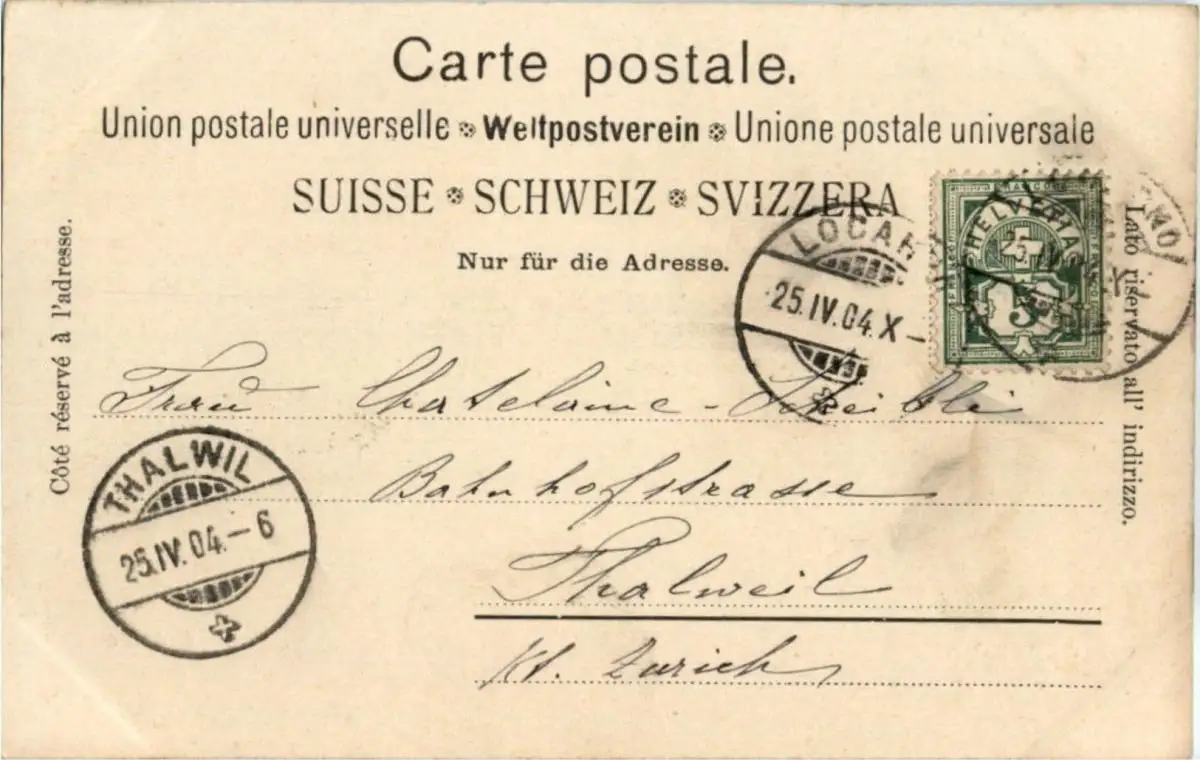 Carte postale.
Union postale universelle Weltpostverein Unione postale universale
SUISSE SCHWEIZ SVIZZERA
Nur für die Adresse.
Côté réservé à l'adresse.
Lato riservato all' indirizzo.
LOCAR
25.IV.04.X
FRANCO
HELVETIA
5
25.IV
Frau Chatelaine-Scheibli
Bahnhofstrasse
Thalweil
Kt. Zürich
THALWIL
25.IV.04.-6